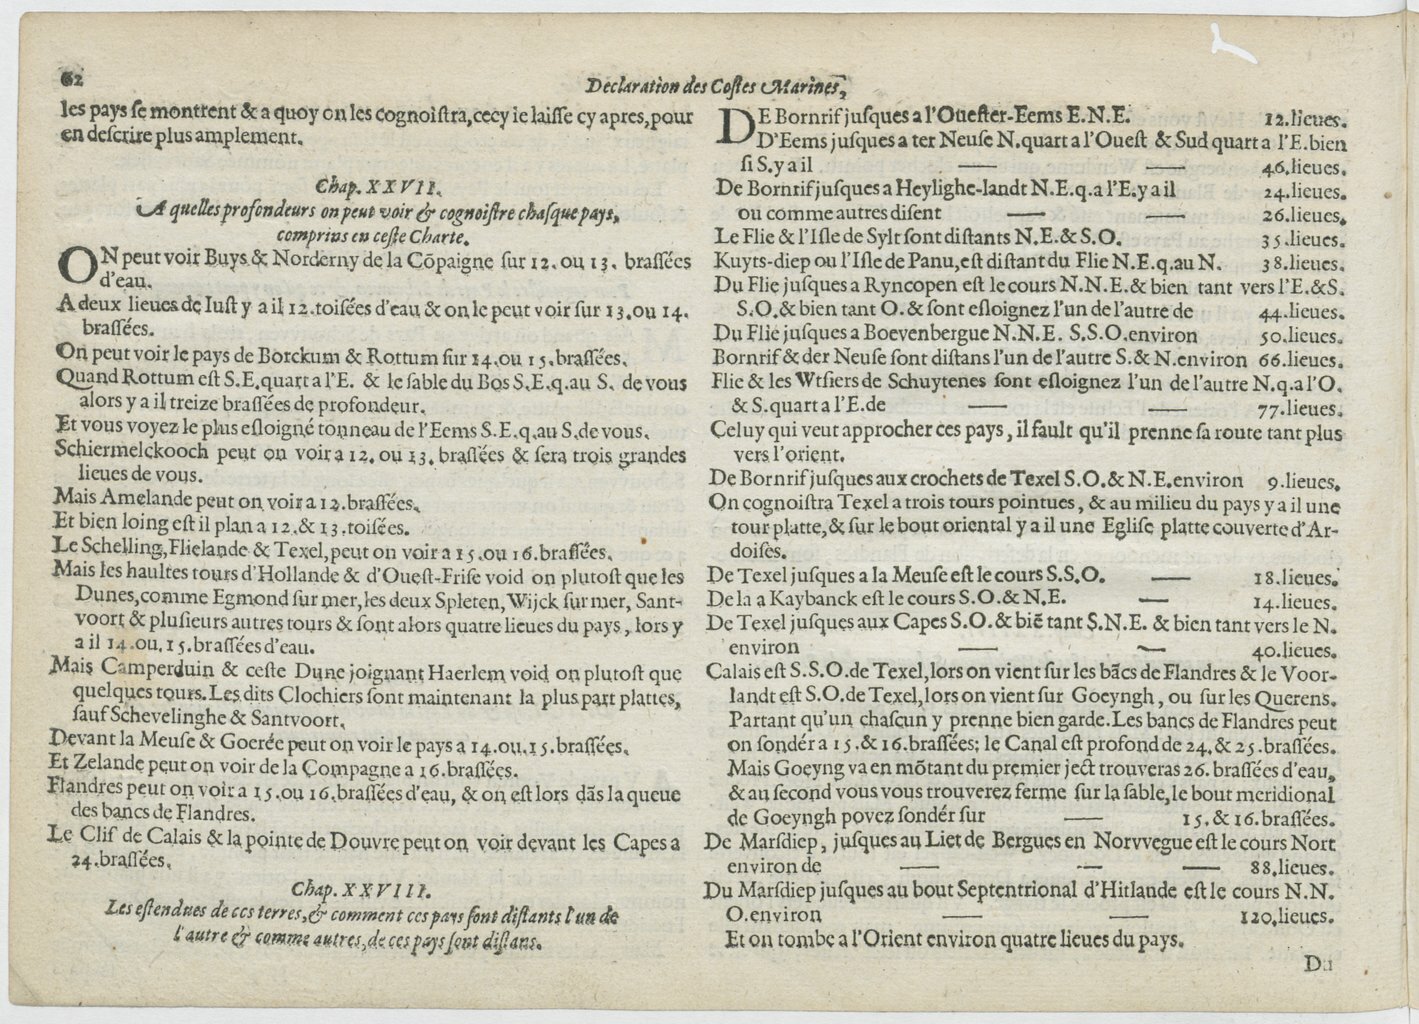 62
Declaration des Costes Marines,
les pays se montrent & a quoy on les cognoistra, cecy ie laisse cy apres, pour
en descrire plus amplement.
Chap. XXVII.
A quelles profondeurs on peut voir & cognoistre chasque pays,
comprins en ceste Charte.
ON peut voir Buys & Norderny de la Cõpaigne sur 12. ou 13. brassées
d'eau.
A deux lieues de Iust y a il 12. toisées d'eau & on le peut voir sur 13. ou 14.
brassées.
On peut voir le pays de Borckum & Rottum sur 14. ou 15. brassées.
Quand Rottum est S.E. quart a l'E. & le sable du Bos S.E.q. au S. de vous
alors y a il treize brassées de profondeur.
Et vous voyez le plus esloigné tonneau de l'Eems S.E.q. au S. de vous.
Schiermelckooch peut on voir a 12. ou 13. brassées & sera trois grandes
lieues de vous.
Mais Amelande peut on voir a 12. brassées.
Et bien loing est il plan a 12. & 13. toisées.
Le Schelling, Flielande & Texel, peut on voir a 15. ou 16. brassées.
Mais les haultes tours d'Hollande & d'Ouest-Frise void on plutost que les
Dunes, comme Egmond sur mer, les deux Spleten, Wijck sur mer, Sant-
voort & plusieurs autres tours & sont alors quatre lieues du pays, lors y
a il 14. ou. 15. brassées d'eau.
Mais Camperduin & ceste Dune joignant Haerlem void on plutost que
quelques tours. Les dits Clochiers sont maintenant la plus part plattes,
sauf Schevelinghe & Santvoort.
Devant la Meuse & Goerée peut on voir le pays a 14. ou. 15. brassées.
Et Zelande peut on voir de la Compagne a 16. brassées.
Flandres peut on voir a 15. ou 16. brassées d'eau, & on est lors dãs la queue
des bancs de Flandres.
Le Clif de Calais & la pointe de Douvre peut on voir devant les Capes a
24. brassées.
Chap. XXVIII.
Les estendues de ces terres, & comment ces pays sont distants l'un de
l'autre & comme autres, de ces pays sont distans.
DE Bornrif jusques a l'Ouester-Eems E.N.E. 12. lieues.
D'Eems jusques a ter Neuse N. quart a l'Ouest & Sud quart a l'E. bien
si S. y a il — — 46. lieues.
De Bornrif jusques a Heylighe-landt N.E.q. a l'E. y a il 24. lieues.
ou comme autres disent — — 26. lieues.
Le Flie & l'Isle de Sylt sont distants N.E. & S.O. 35. lieues.
Kuyts-diep ou l'Isle de Panu, est distant du Flie N.E.q. au N. 38. lieues.
Du Flie jusques a Ryncopen est le cours N.N.E. & bien tant vers l'E. & S.
S.O. & bien tant O. & sont esloignez l'un de l'autre de 44. lieues.
Du Flie jusques a Boevenbergue N.N.E. S.S.O. environ 50. lieues.
Bornrif & der Neuse sont distans l'un de l'autre S. & N. environ 66. lieues.
Flie & les Wtsiers de Schuytenes sont esloignez l'un de l'autre N.q. a l'O.
& S. quart a l'E. de — — 77. lieues.
Celuy qui veut approcher ces pays, il fault qu'il prenne sa route tant plus
vers l'orient.
De Bornrif jusques aux crochets de Texel S.O. & N.E. environ 9. lieues.
On cognoistra Texel a trois tours pointues, & au milieu du pays y a il une
tour platte, & sur le bout oriental y a il une Eglise platte couverte d'Ar-
doises.
De Texel jusques a la Meuse est le cours S.S.O. — 18. lieues.
De la a Kaybanck est le cours S.O. & N.E. — 14. lieues.
De Texel jusques aux Capes S.O. & biẽ tant S.N.E. & bien tant vers le N.
environ — — 40. lieues.
Calais est S.S.O. de Texel, lors on vient sur les bãcs de Flandres & le Voor-
landt est S.O. de Texel, lors on vient sur Goeyngh, ou sur les Querens.
Partant qu'un chascun y prenne bien garde. Les bancs de Flandres peut
on sondér a 15. & 16. brassées; le Canal est profond de 24. & 25. brassées.
Mais Goeyng va en mõtant du premier ject trouveras 26. brassées d'eau,
& au second vous vous trouverez ferme sur la sable, le bout meridional
de Goeyngh povez sondér sur — 15. & 16. brassées.
De Marsdiep, jusques au Liet de Bergues en Norvvegue est le cours Nort
environ de — — — 88. lieues.
Du Marsdiep jusques au bout Septentrional d'Hitlande est le cours N.N.
O. environ — — 120. lieues.
Et on tombe a l'Orient environ quatre lieues du pays.
Du